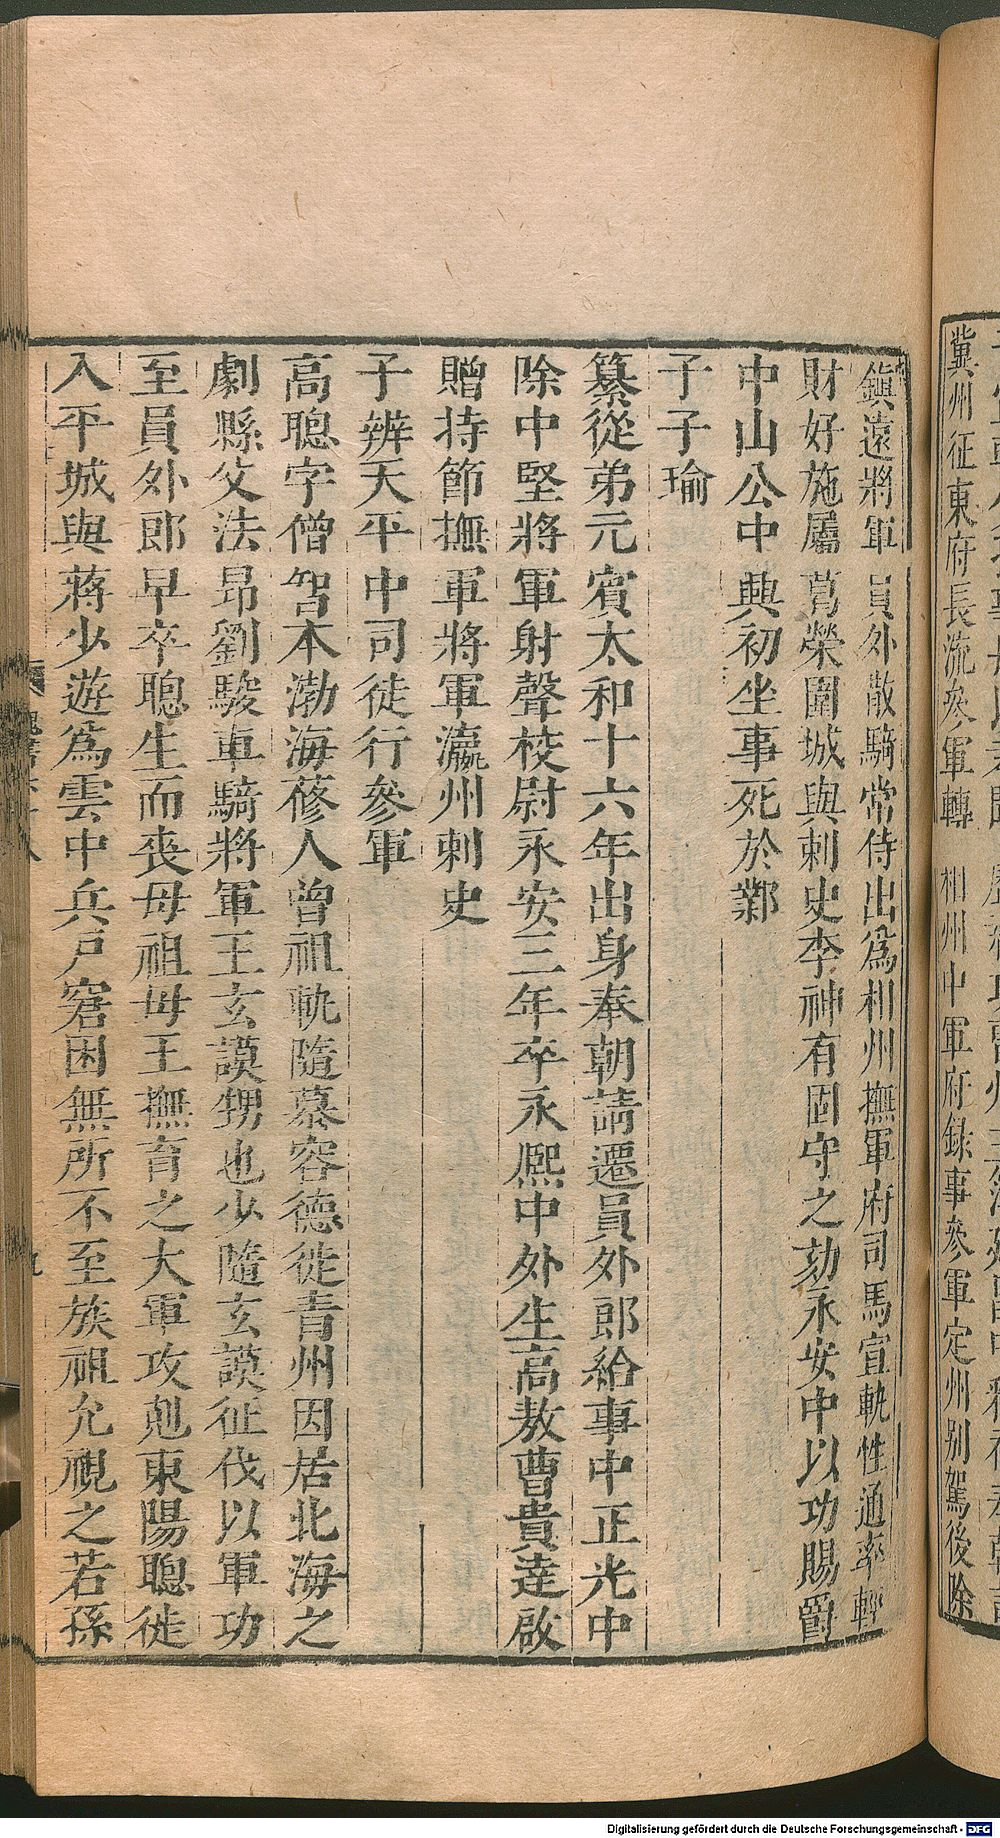 冀州征東府長流參軍轉 相州中軍府録事參軍定州别駕後除
鎭遠將軍員外散騎常侍出爲相州撫軍府司馬宣軌性通率輕
財好施屬葛榮圍城與刺史李神有固守之効永安中以功賜爵
中山公中興初坐事死於鄴
子子瑜
纂從弟元賓太和十六年出身奉朝請遷員外郎給事中正光中
除中堅將軍射聲校尉永安三年卒永熈中外生高敖曹貴達啟
贈持節撫軍將軍瀛州刺史
子辨天平中司徒行參軍
高聰字僧智本渤海蓚人曾祖軌隨慕容德徙青州因居北海之
劇縣父法昂劉駿車騎將軍王玄謨甥也少隨玄謨征伐以軍功
至員外郎早卒聰生而喪母祖母王撫育之大軍攻尅東陽聰徙
入平城與蔣少遊爲雲中兵戸窘困無所不至族祖允視之若孫
Digitalisierung gefördert durch die Deutsche Forschungsgemeinschaft - DFG